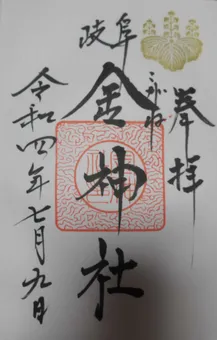 奉拝
岐阜
金神社
こがね
令和四年七月九日